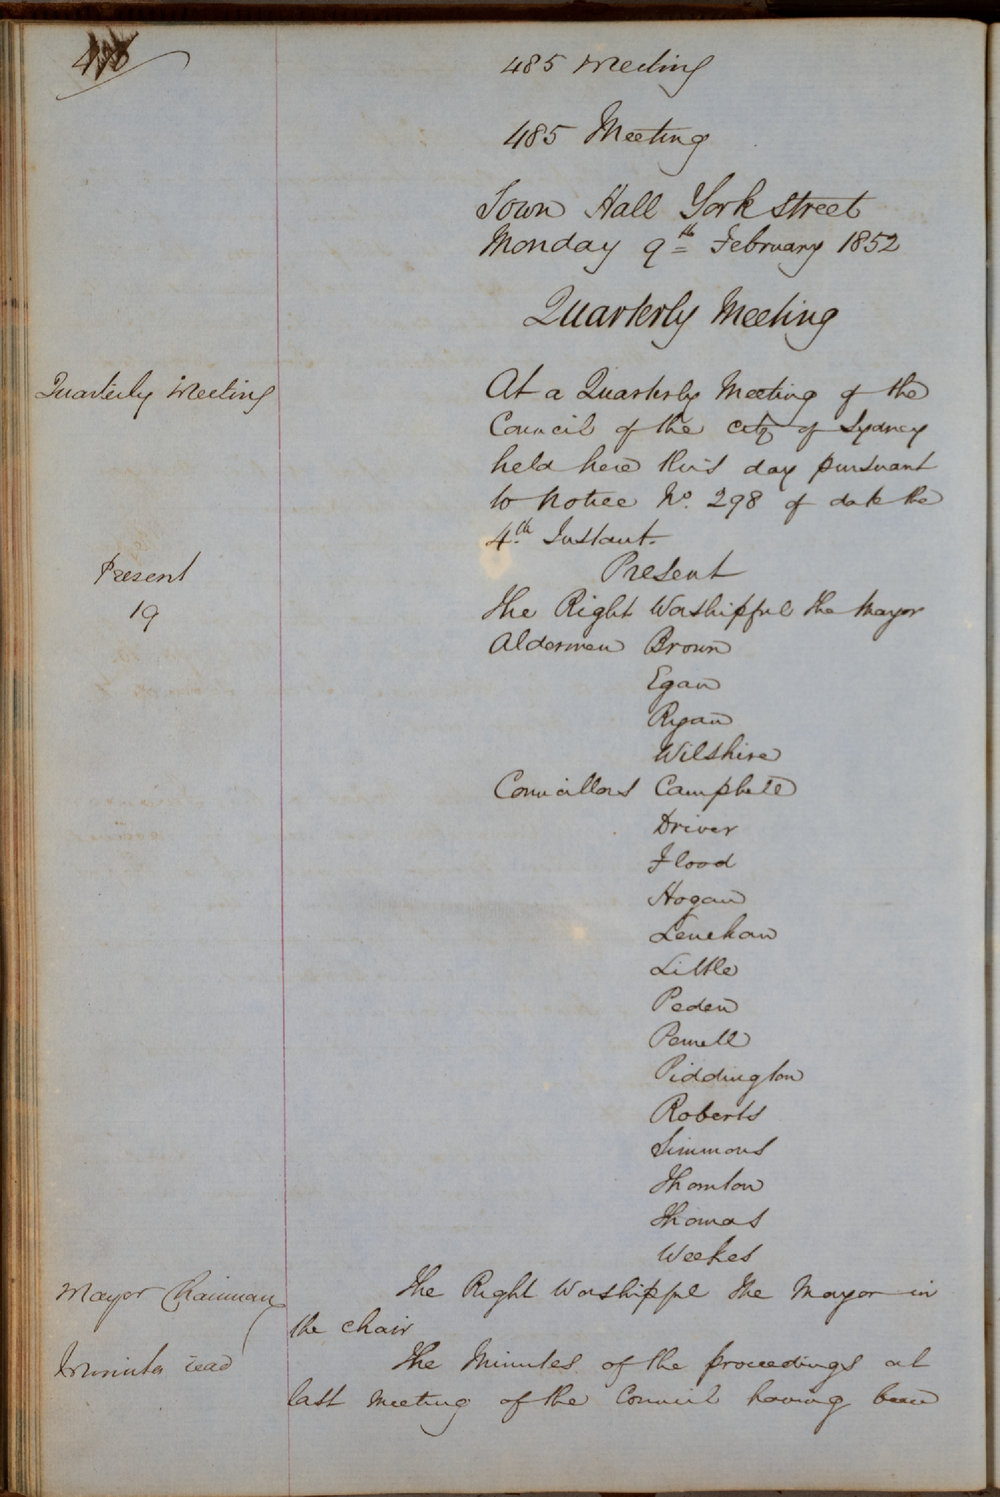 485 Meeting
485 Meeting
Town Hall York Street
Monday 9th February 1852
Quarterly Meeting
Quarterly Meeting
At a Quarterly Meeting of the
Council of the city of Sydney
held here this day pursuant
to Notice No. 298 of date the
4th Instant.
Present
19
Present
The Right Worshipful the Mayor
Aldermen Brown
Egan
Ryan
Wilshire
Councillors Campbell
Driver
Flood
Hogan
Lenehan
Little
Peden
Pemell
Piddington
Roberts
Simmons
Thornton
Thomas
Weekes
Mayor Chairman
The Right Worshipful the Mayor in
the chair
Minutes read
The Minutes of the proceedings at
last meeting of the Council having been